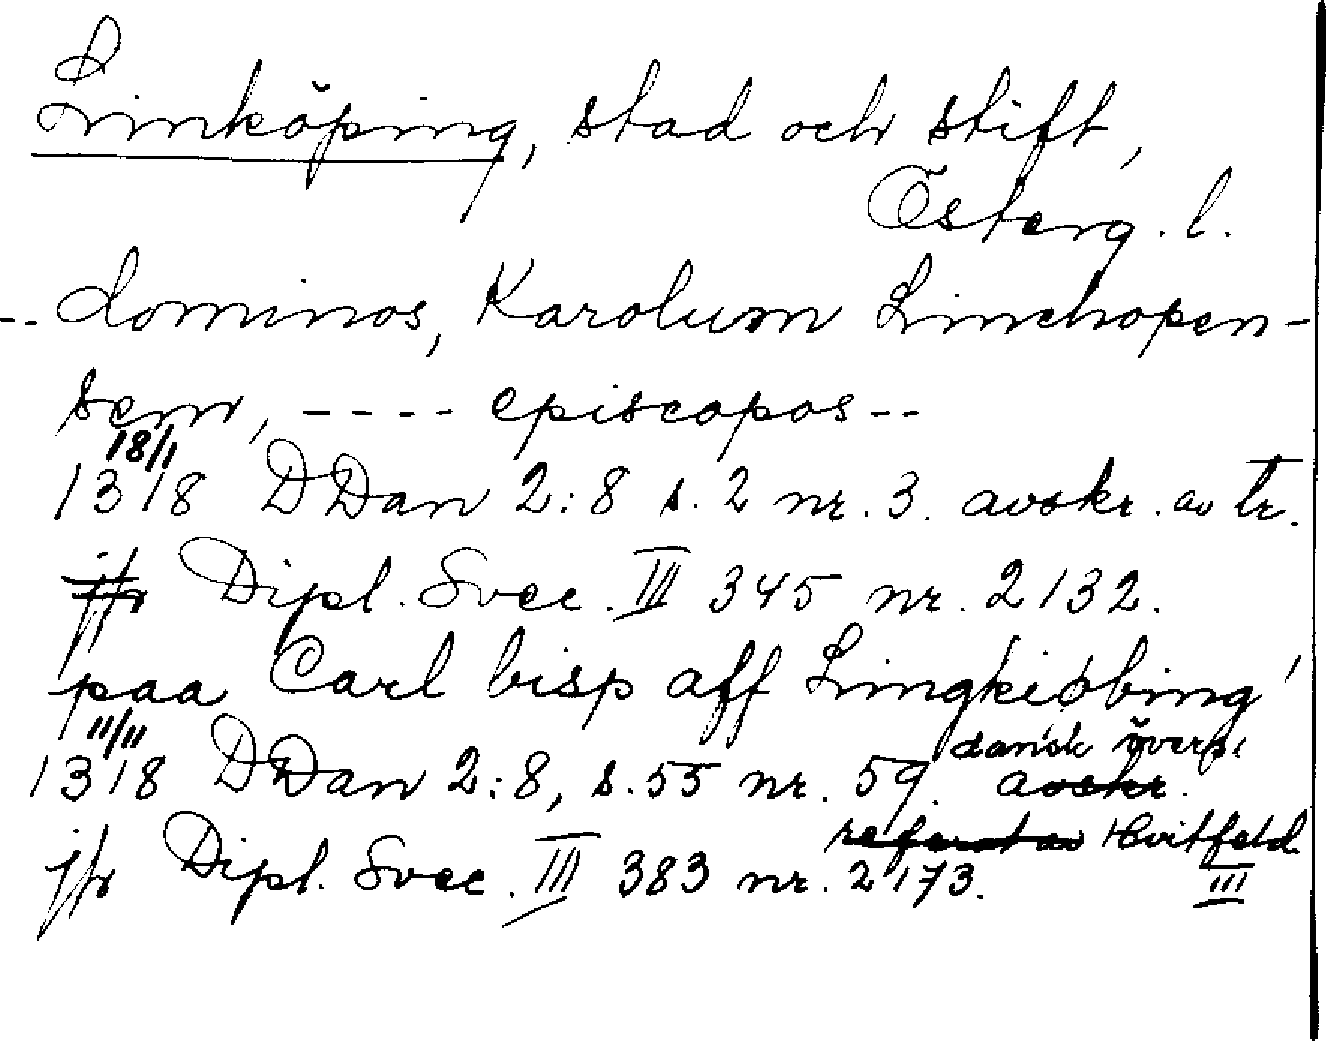 Linköping, stad och stift,
Österg. l.
-- dominos, Karolum Linchopen-
sem, ---- episcopos --
18/1
1318 DDan 2:8 s. 2 nr. 3. avskr. av tr.
jfr Dipl. Svec. III 345 nr. 2132.
paa Carl bisp aff Lingkiøbing
11/11
dansk övers.
1318 DDan 2:8, s. 55 nr. 59. avskr.
referat av Hvitfeld
jfr Dipl. Svec. III 383 nr. 2173. III